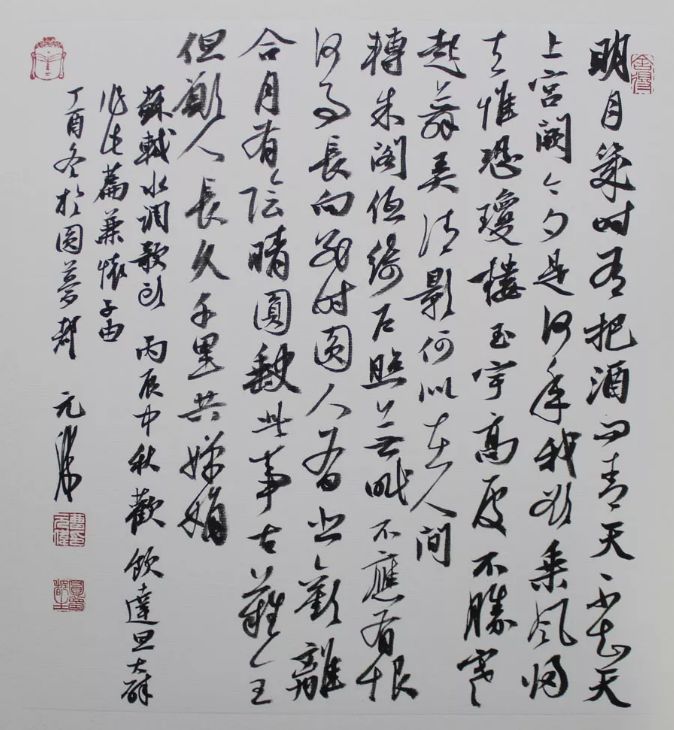 明月幾时有把酒问青天不知天
上宫阙今夕是何年我欲乘风归
去惟恐瓊樓玉宇高處不勝寒
起舞弄清影何似在人间
轉朱阁低綺户照无眠不應有恨
何事長向别时圆人有悲歡離
合月有陰晴圓缺此事古難全
但願人長久千里共嬋娟
蘇軾水调歌頭 丙辰中秋歡飲達旦大醉
作此篇兼懷子由
丁酉冬於圆夢 元